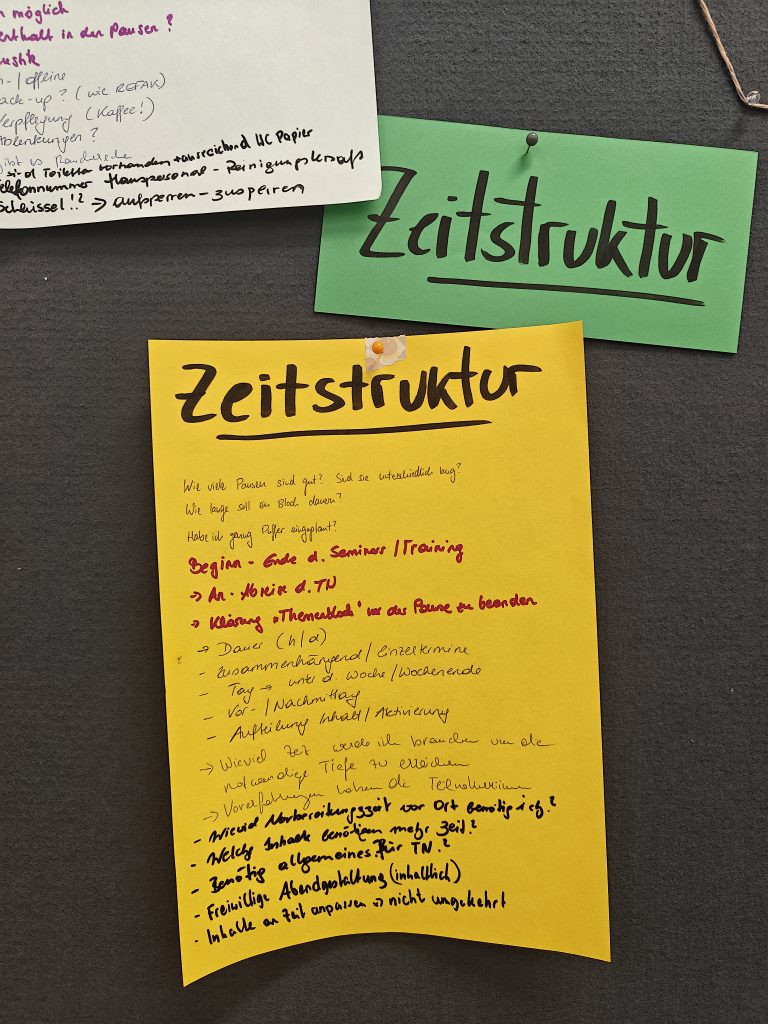 möglich
in den Pausen?
/offline
Back-up? (wie REFAK)
Verpflegung (Kaffee!)
Ablenkungen?
gibt es
sind Toiletten vorhanden + ausreichend WC Papier
Telefonnummer Hauspersonal - Reinigungskraft
Schlüssel!!? → aufsperren - zusperren
Zeitstruktur
Zeitstruktur
Wie viele Pausen sind gut? Sind sie unterschiedlich lang?
Wie lange soll ein Block dauern?
Habe ich genug Puffer eingeplant?
Beginn - Ende d. Seminars / Training
→ An- Abreise d. TN
→ Klärung "Themenblock" vor der Pause zu beenden
→ Dauer (h/d)
- Zusammenhängend / Einzeltermine
- Tag → unter d. Woche / Wochenende
- Vor- / Nachmittag
- Aufteilung Inhalt / Aktivierung
→ Wieviel Zeit werde ich brauchen um die
notwendige Tiefe zu erreichen
→ Vorerfahrungen haben die
- Wieviel Vorbereitungszeit vor Ort benötig ich?
- Welche Inhalte benötigen mehr Zeit?
- Benötig allgemeines für TN.?
- Freiwillige Abendgestaltung (inhaltlich)
- Inhalte an Zeit anpassen → nicht umgekehrt